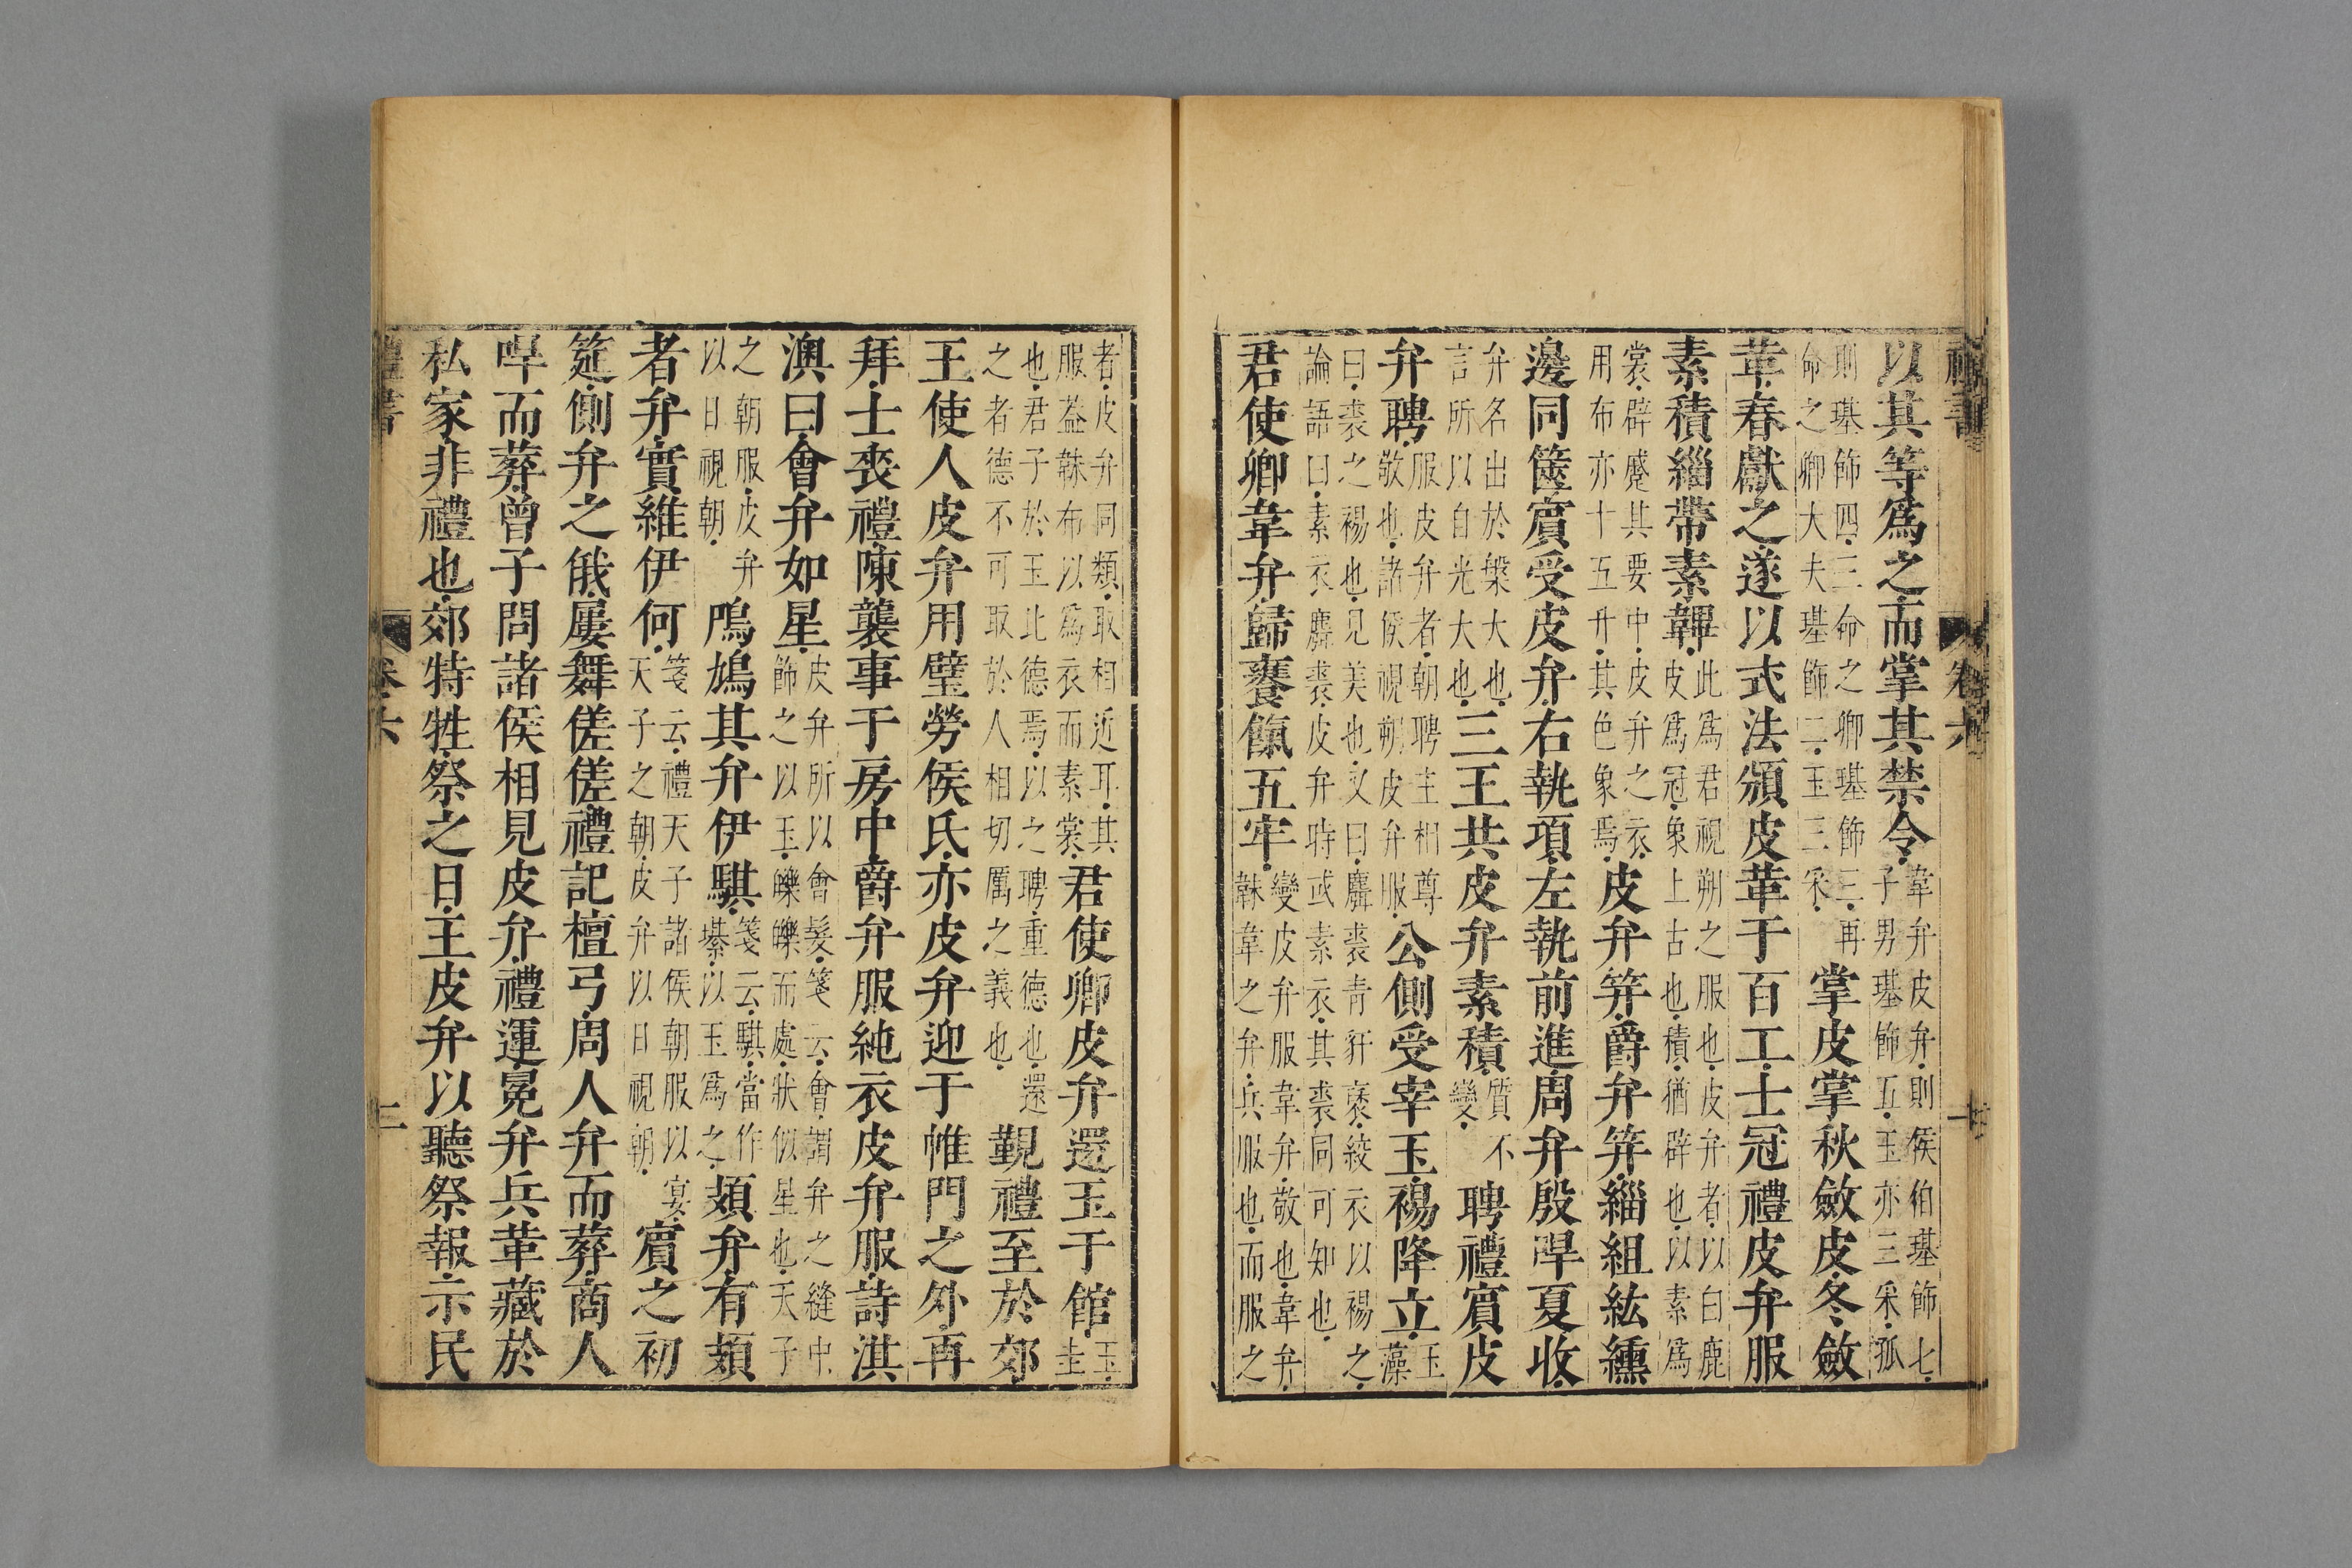 禮書 卷六 一
以其等爲之而掌其禁令韋弁皮弁則侯伯璂飾七子男璂飾五玉亦三采孤
則璂飾四三命之卿璂飾三再命之卿大夫璂飾二玉三采掌皮掌秋斂皮冬斂
革春獻之遂以式法頒皮革于百工士冠禮皮弁服
素積緇帶素韠此爲君視朔之服也皮弁者以白鹿皮爲冠象上古也積猶辟也以素爲
裳辟蹙其要中皮弁之衣用布亦十五升其色象焉皮弁笄爵弁笄緇組紘纁
邊同篋賓受皮弁右執項左執前進周弁殷冔夏收
弁名出於槃大也言所以自光大也三王共皮弁素積質不變聘禮賓皮
弁聘服皮弁者朝聘主相尊敬也諸侯視朔皮弁服公側受宰玉裼降立玉藻
曰裘之裼也見美也又曰麛裘青豻褎絞衣以裼之論語曰素衣麛裘皮弁時或素衣其裘同可知也
君使卿韋弁歸饔餼五牢變皮弁服韋弁敬也韋弁韎韋之弁兵服也而服之
者皮弁同類取相近耳其服蓋韎布以爲衣而素裳君使卿皮弁還玉于館玉圭
也君子於玉比德焉以之聘重德也還之者德不可取於人相切厲之義也覲禮至於郊
王使人皮弁用璧勞侯氏亦皮弁迎于帷門之外再
拜士喪禮陳襲事于房中爵弁服純衣皮弁服詩淇
澳曰會弁如星皮弁所以會髮箋云會謂弁之縫中飾之以玉皪皪而處狀似星也天子
之朝服皮弁以日視朝鳲鳩其弁伊騏箋云騏當作綦以玉爲之頍弁有頍
者弁實維伊何箋云禮天子諸侯朝服以宴天子之朝皮弁以日視朝賓之初
筵側弁之俄屢舞傞傞禮記檀弓周人弁而葬商人
冔而葬曾子問諸侯相見皮弁禮運冕弁兵革藏於
私家非禮也郊特牲祭之日王皮弁以聽祭報示民
禮書 卷六 二